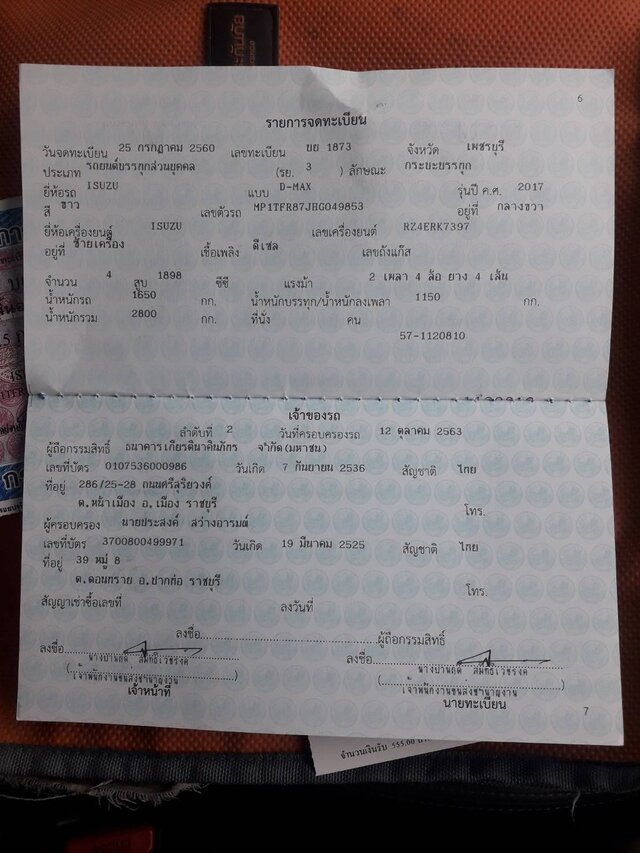 6
รายการจดทะเบียน
วันจดทะเบียน 25 กรกฎาคม 2560 เลขทะเบียน ยย 1873 จังหวัด เพชรบุรี
ประเภท รถยนต์บรรทุกส่วนบุคคล (รย. 3 ) ลักษณะ กระบะบรรทุก
ยี่ห้อรถ ISUZU แบบ D-MAX รุ่นปี ค.ศ. 2017
สี ขาว เลขตัวรถ MP1TFR87JHG049853 อยู่ที่ กลางขวา
ยี่ห้อเครื่องยนต์ ISUZU เลขเครื่องยนต์ RZ4ERK7397
อยู่ที่ ซ้ายเครื่อง เชื้อเพลิง ดีเซล เลขถังแก๊ส
จำนวน 4 สูบ 1898 ซีซี แรงม้า 2 เพลา 4 ล้อ ยาง 4 เส้น
น้ำหนักรถ 1650 กก. น้ำหนักบรรทุก/น้ำหนักลงเพลา 1150 กก.
น้ำหนักรวม 2800 กก. ที่นั่ง คน
57-1120810
เจ้าของรถ
ลำดับที่ 2 วันที่ครอบครองรถ 12 ตุลาคม 2563
ผู้ถือกรรมสิทธิ์ ธนาคารเกียรตินาคินภัทร จำกัด(มหาชน)
เลขที่บัตร 0107536000986 วันเกิด 7 กันยายน 2536 สัญชาติ ไทย
ที่อยู่ 286/25-28 ถนนศรีสุริยวงศ์
ต.หน้าเมือง อ.เมือง ราชบุรี
โทร.
ผู้ครอบครอง นายประสงค์ สว่างอารมณ์
เลขที่บัตร 3700800499971 วันเกิด 19 มีนาคม 2525 สัญชาติ ไทย
ที่อยู่ 39 หมู่ 8
ต.ดอนทราย อ.ปากท่อ ราชบุรี โทร.
สัญญาเช่าซื้อเลขที่ ลงวันที่
ลงชื่อ ผู้ถือกรรมสิทธิ์
ลงชื่อ ลงชื่อ
(เจ้าพนักงานขนส่งชำนาญงาน) (เจ้าพนักงานขนส่งชำนาญงาน)
เจ้าหน้าที่ นายทะเบียน
7
จำนวนเงินรับ 555.00